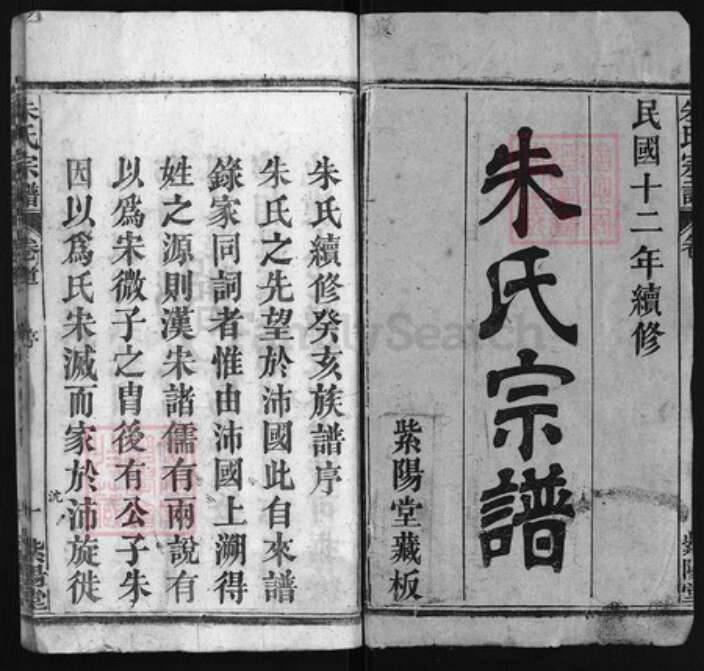 朱氏宗譜
民國十二年續修
朱氏宗譜
紫陽堂藏板
紫陽堂
朱氏續修癸亥族譜序
朱氏之先望於沛國此自來譜
錄家同詞者惟由沛國上溯得
姓之源則漢宋諸儒有兩說有
以爲宋微子之冑後有公子朱
因以爲氏宋滅而家於沛旋徙
沈
朱氏宗譜
卷首
序
一
紫陽堂
FamilySearch